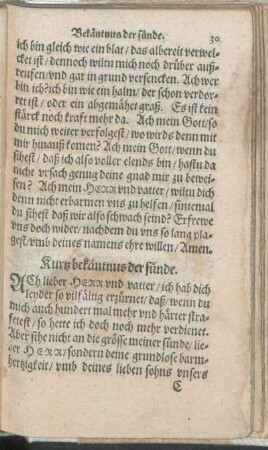 Bekäntnus der sünde. 30
ich bin gleich wie ein blat / das albereit verwel-
cket ist / dennoch wiltu mich noch drüber auß-
reufen / vnd gar in grund versencken. Ach wer
bin ich? ich bin wie ein halm / der schon verdor-
ret ist / oder ein abgemähet graß. Es ist kein
stärck noch kraft mehr da. Ach mein Gott / so
du mich weiter verfolgest / wo wirds denn mit
mir hinauß komen? Ach mein Gott / wenn du
sihest / daß ich also voller elends bin / hastu da
nicht vrsach genug deine gnad mir zu bewei-
sen? Ach mein HERR vnd vatter / wiltu dich
denn nicht erbarmen vns zu helfen / sintemal
du sihest daß wir also schwach seind? Erfrewe
vns doch wider / nachdem du vns so lang pla-
gest / vmb deines namens ehre willen / Amen.
Kurtz bekäntnus der sünde.
ACh lieber HERR vnd vatter / ich hab dich
leyder so vilfältig erzürnet / daß / wenn du
mich auch hundert mal mehr vnd härter stra-
fetest / so hette ich doch noch mehr verdienet.
Aber sihe nicht an die grösse meiner sünde / lie-
ber HERR / sondern deine grundlose barm-
hertzigkeit / vmb deines lieben sohns vnsers
C